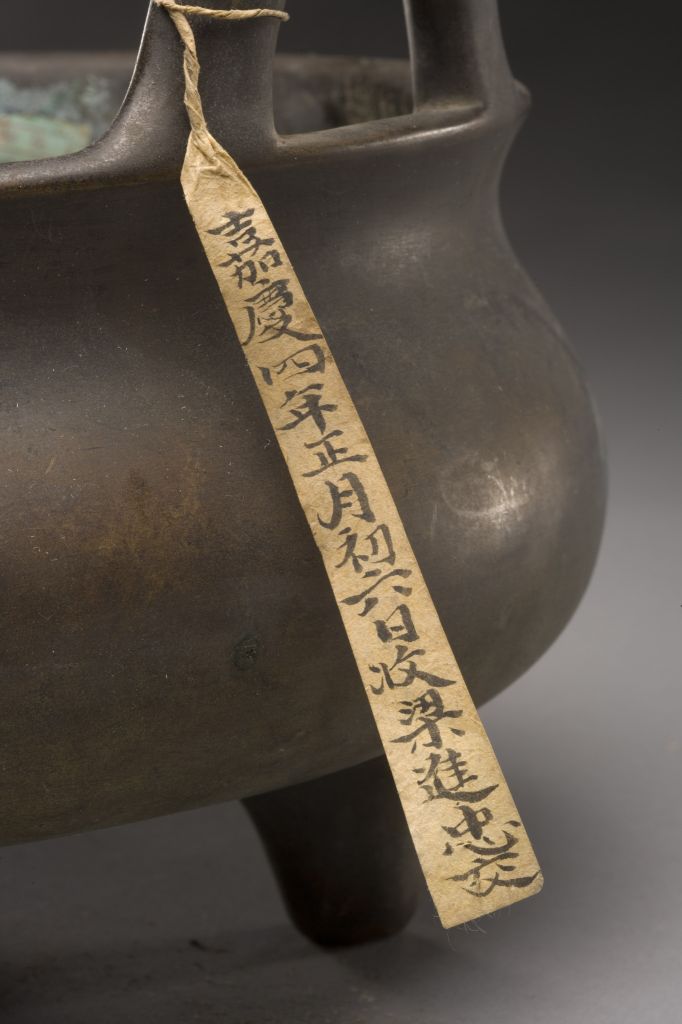 嘉慶四年正月初六日收梁進忠交